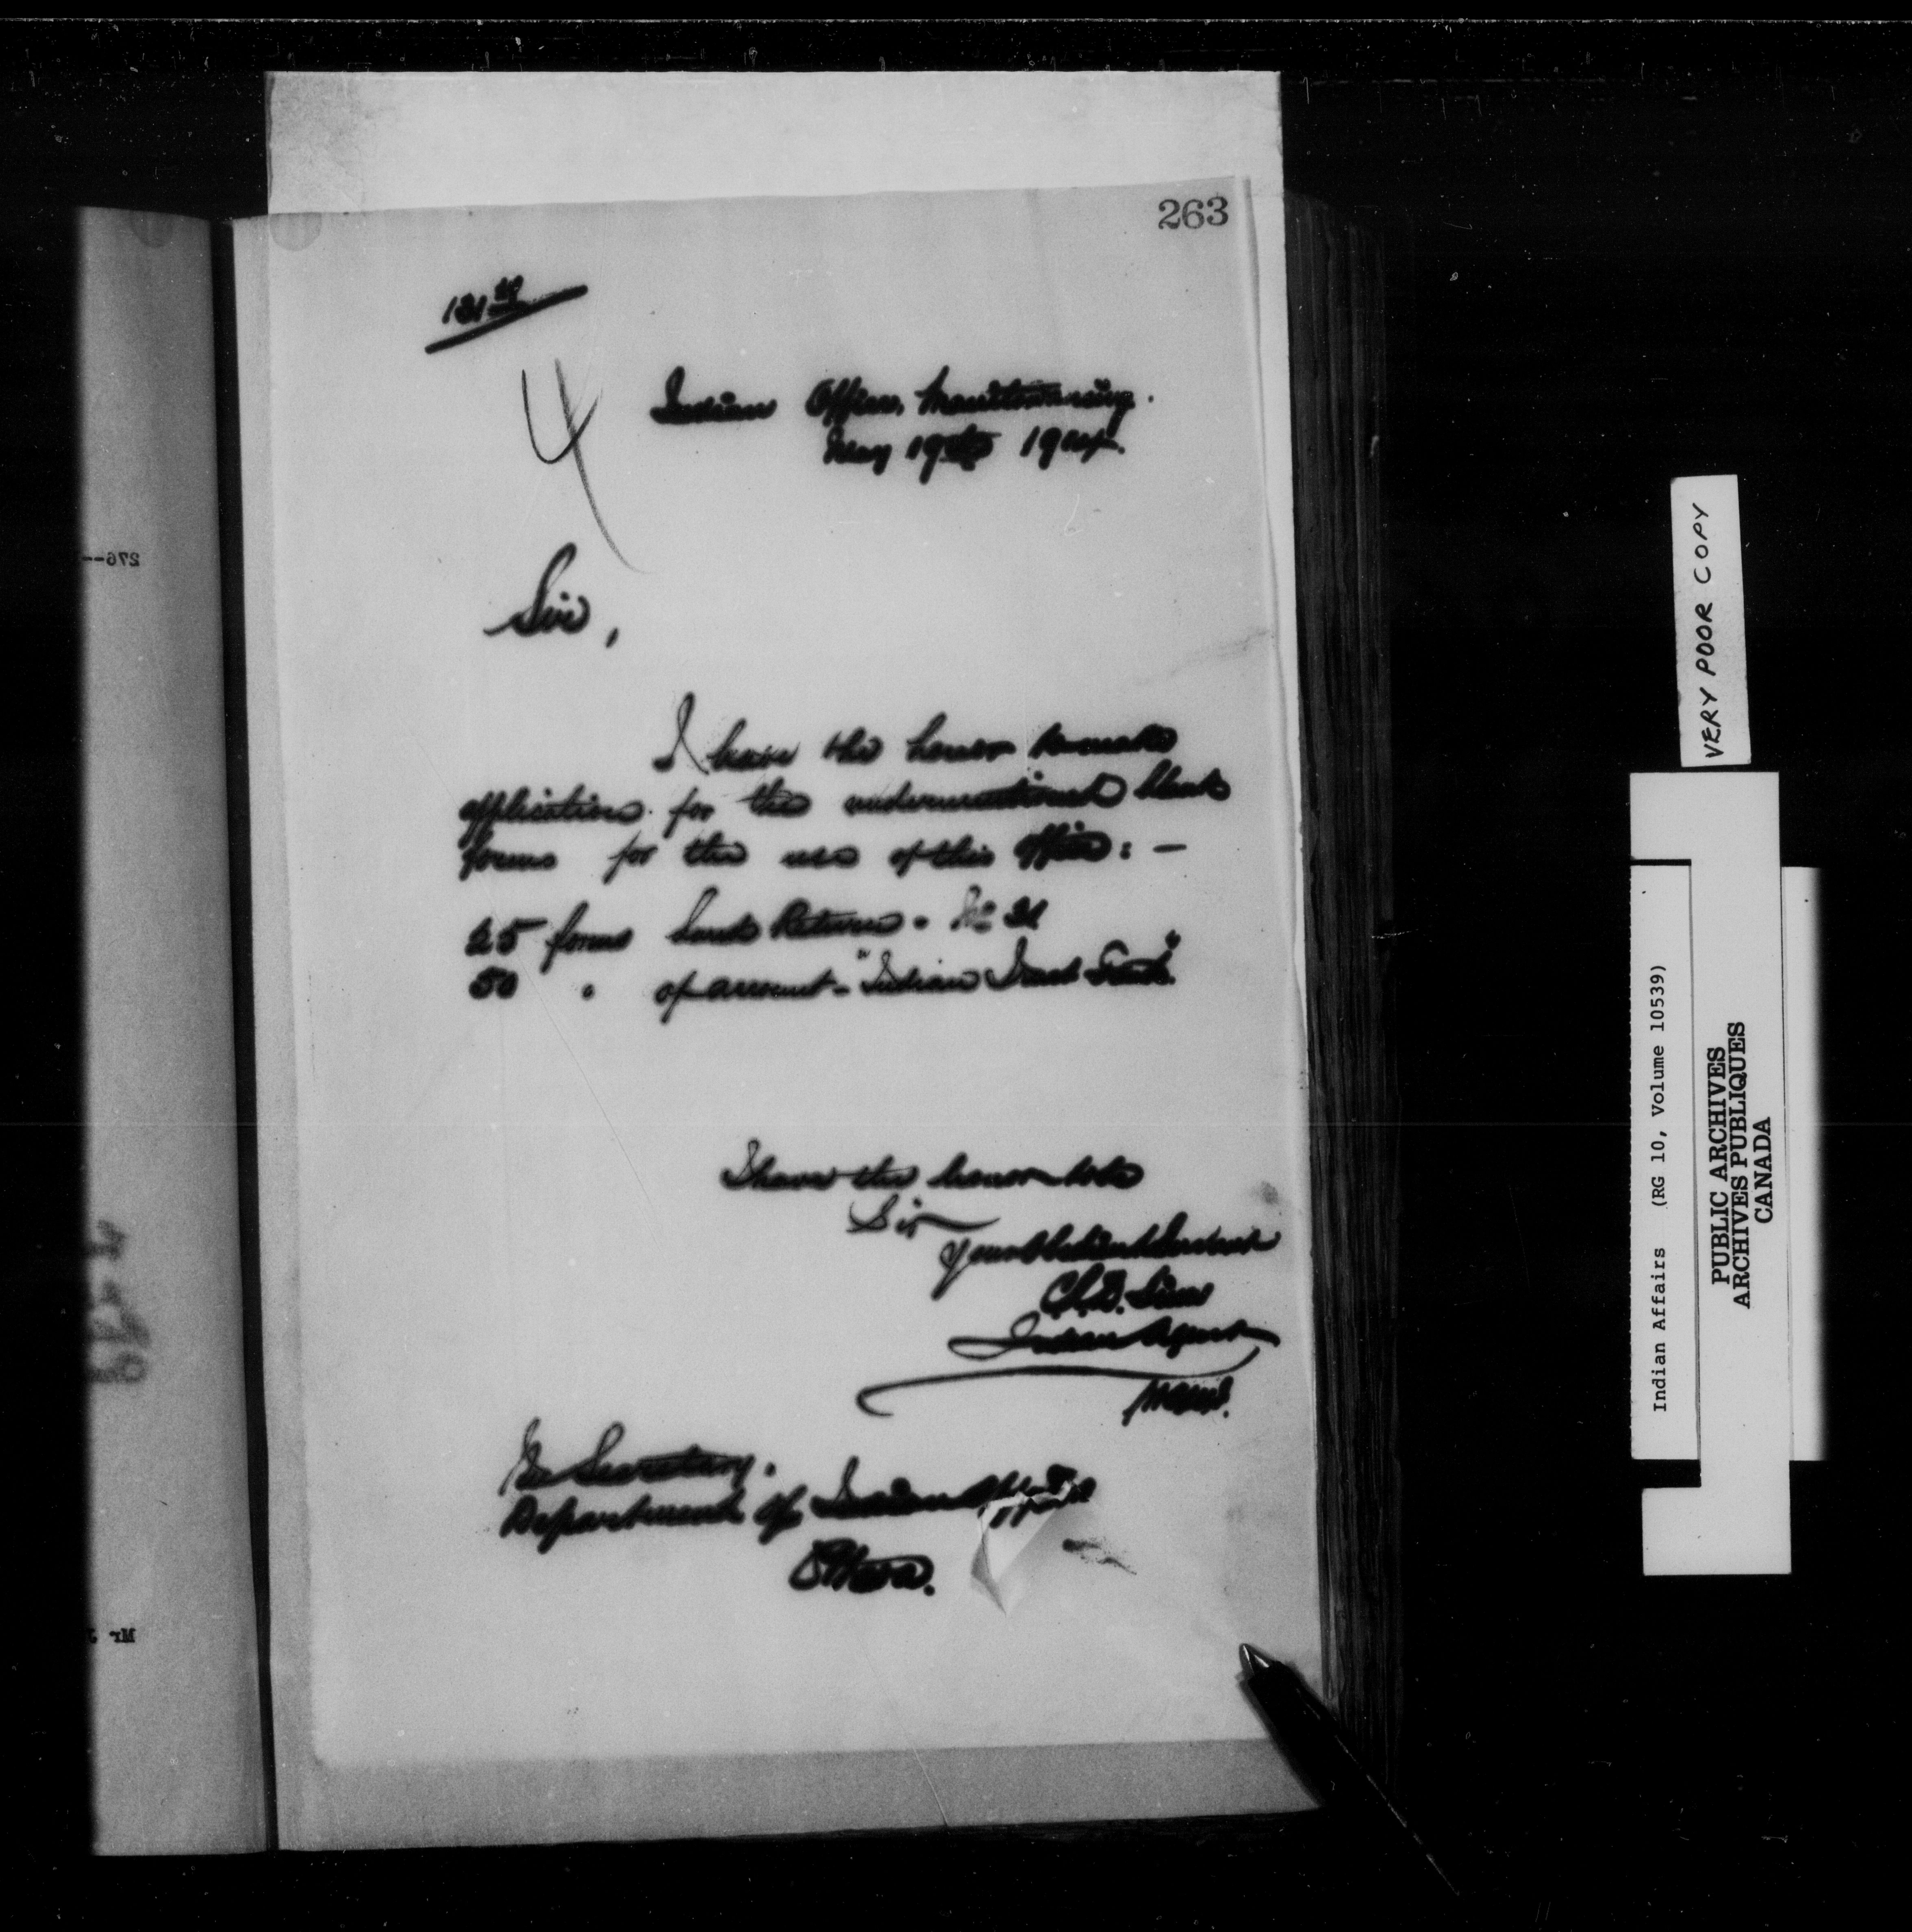 263
Indian Office, Manitowaning.
May 19th 1904.
Sir,
I have the honor to make
application for the undermentioned blank
forms for the use of this office: —
25 forms Land Returns. No 31
50 " of account - "Indian Land Fund"
I have the honor to be
Sir
Your Obedient Servant
C.L.D. Sims
Indian Agent
The Secretary.
Department of Indian Affairs
Ottawa.
276--
Mr
VERY POOR COPY
Indian Affairs (RG 10, Volume 10539)
PUBLIC ARCHIVES
ARCHIVES PUBLIQUES
CANADA